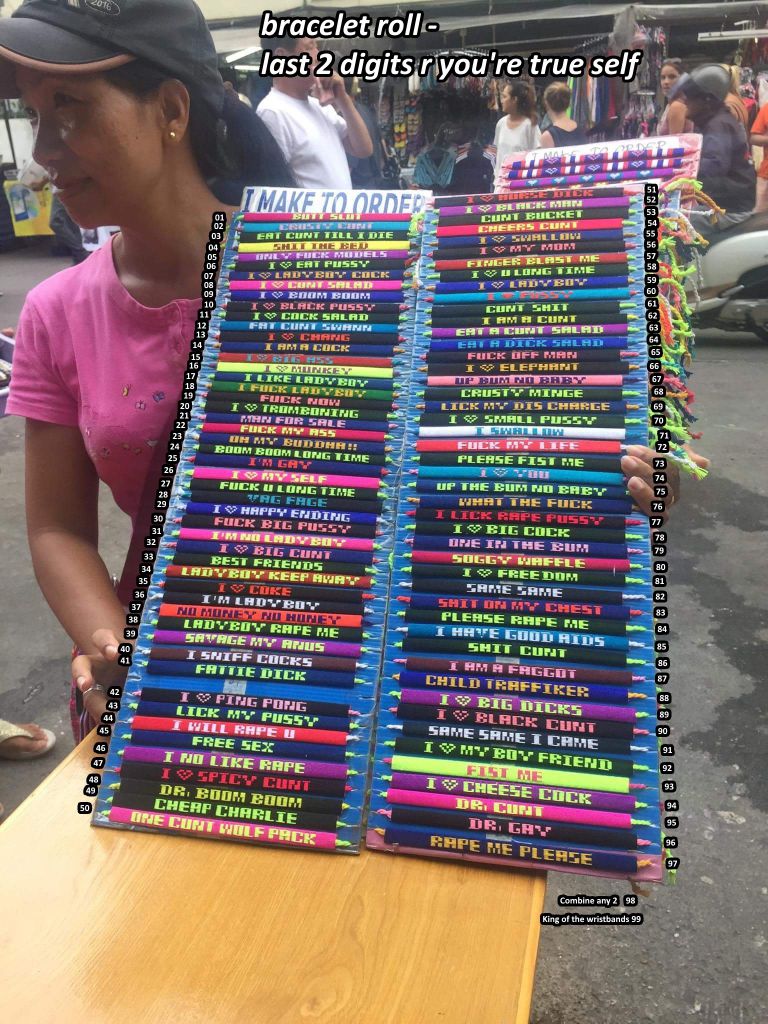 2016
bracelet roll -
last 2 digits r you're true self
I MAKE TO ORDER
I MAKE TO ORDER
01 BUTT SLUT
02 CRUSTY CUNT
03 EAT CUNT TILL I DIE
04 SHIT THE BED
05 ONLY FUCK MODELS
06 I ♡ EAT PUSSY
07 I ♡ LADYBOY COCK
08 I ♡ CUNT SALAD
09 I ♡ BOOM BOOM
10 I ♡ BLACK PUSSY
11 I ♡ COCK SALAD
12 FAT CUNT SWANN
13 I ♡ CHANG
14 I AM A COCK
15 I ♡ BIG ASS
16 I ♡ MONKEY
17 I LIKE LADYBOY
18 I FUCK LADYBOY
19 FUCK NOW
20 I ♡ TROMBONING
21 MAN FOR SALE
22 FUCK MY ASS
23 OH MY BUDDHA!!
24 BOOM BOOM LONG TIME
25 I'M GAY
26 I ♡ MY SELF
27 FUCK U LONG TIME
28 VAG FACE
29 I ♡ HAPPY ENDING
30 FUCK BIG PUSSY
31 I'M NO LADYBOY
32 I ♡ BIG CUNT
33 BEST FRIENDS
34 LADYBOY KEEP AWAY
35 I ♡ COKE
36 I'M LADYBOY
37 NO MONEY NO HONEY
38 LADYBOY RAPE ME
39 SAVAGE MY ANUS
40 I SNIFF COCKS
41 FATTIE DICK
42 I ♡ PING PONG
43 LICK MY PUSSY
44 I WILL RAPE U
45 FREE SEX
46 I NO LIKE RAPE
47 I ♡ SPICY CUNT
48 DR. BOOM BOOM
49 CHEAP CHARLIE
50 ONE CUNT WOLF PACK
I ♡ HORSE DICK 51
I ♡ BLACK MAN 52
CUNT BUCKET 53
CHEERS CUNT 54
I ♡ SWALLOW 55
I ♡ MY MOM 56
FINGER BLAST ME 57
I ♡ U LONG TIME 58
I ♡ LADYBOY 59
I ♡ PUSSY 60
CUNT SHIT 61
I AM A CUNT 62
EAT A CUNT SALAD 63
EAT A DICK SALAD 64
FUCK OFF MAN 65
I ♡ ELEPHANT 66
UP BUM NO BABY 67
CRUSTY MINGE 68
LICK MY DIS CHARGE 69
I ♡ SMALL PUSSY 70
I SWALLOW 71
FUCK MY LIFE 72
PLEASE FIST ME 73
I ♡ YOU 74
UP THE BUM NO BABY 75
WHAT THE FUCK 76
I LICK RAPE PUSSY 77
I ♡ BIG COCK 78
ONE IN THE BUM 79
SOGGY WAFFLE 80
I ♡ FREEDOM 81
SAME SAME 82
SHIT ON MY CHEST 83
PLEASE RAPE ME 84
I HAVE GOOD AIDS 85
SHIT CUNT 86
I AM A FAGGOT 87
CHILD TRAFFIKER 88
I ♡ BIG DICKS 89
I ♡ BLACK CUNT 90
SAME SAME I CAME 91
I ♡ MY BOY FRIEND 92
FIST ME 93
I ♡ CHEESE COCK 94
DR. CUNT 95
DR. GAY 96
RAPE ME PLEASE 97
Combine any 2 98
King of the wristbands 99